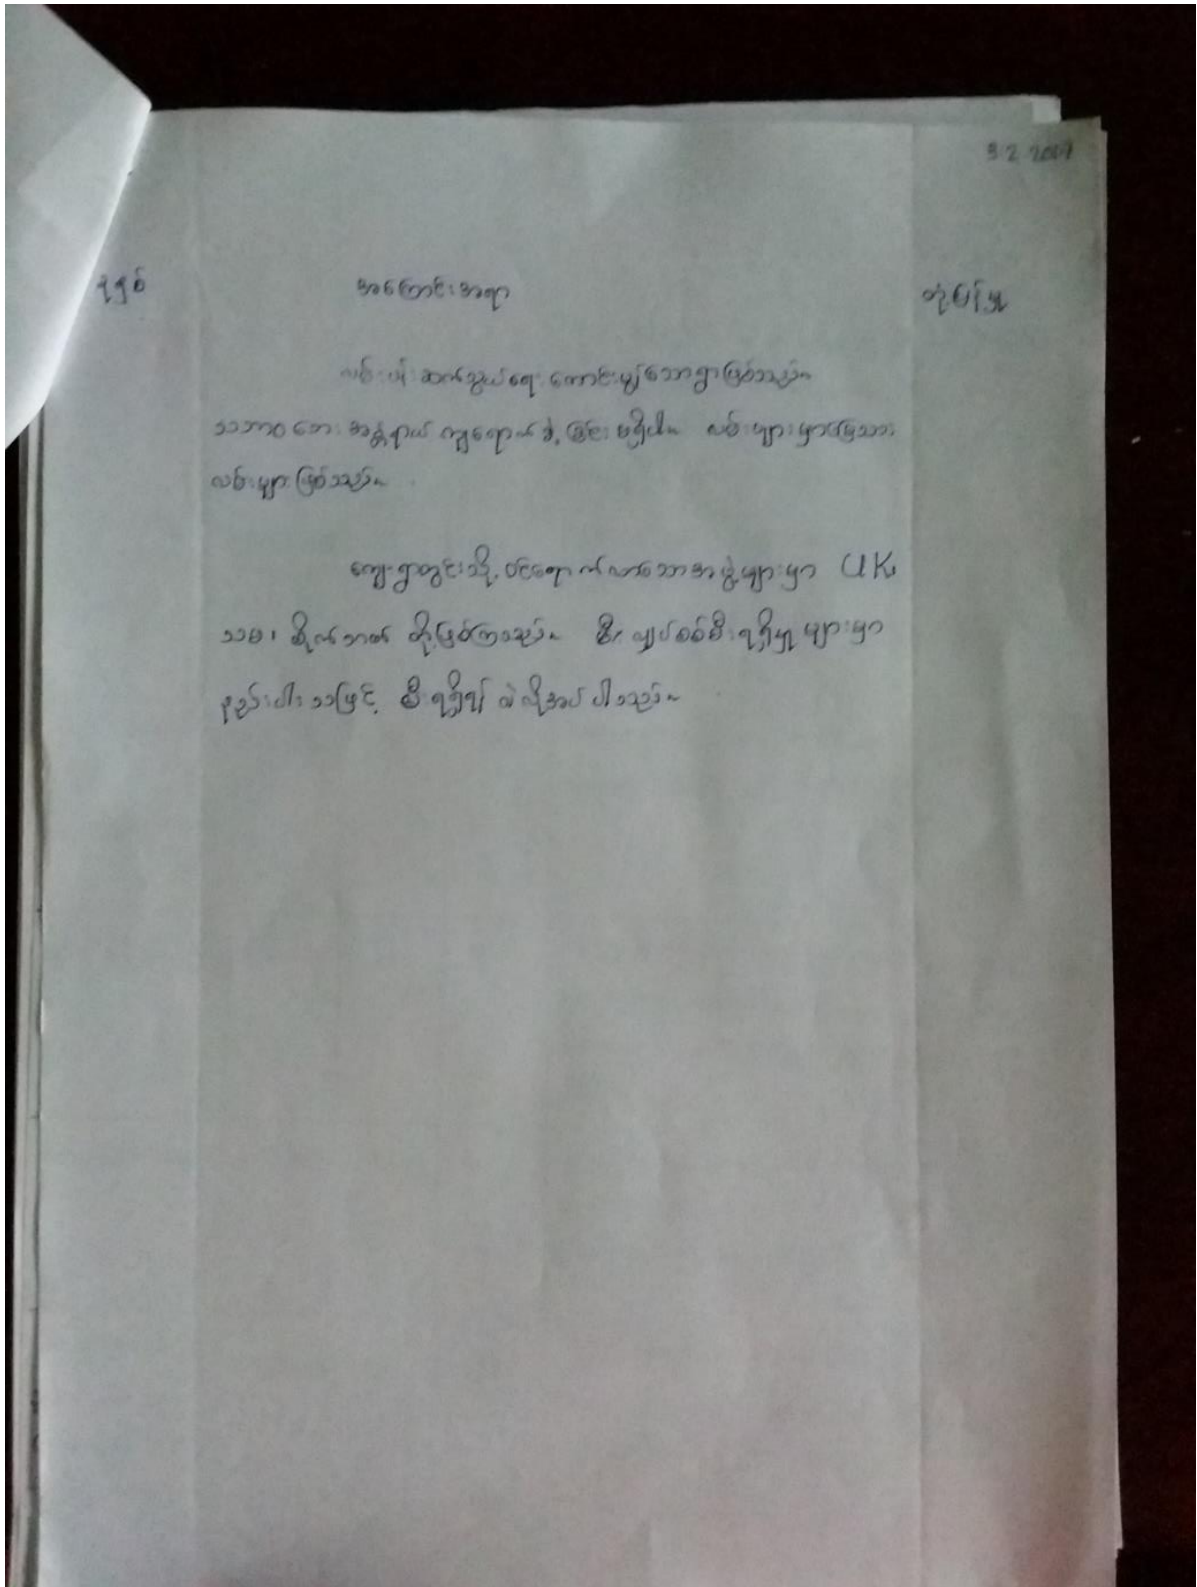 3.2.2007
ခုနှစ် အကြောင်းအရာ တုံ့ပြန်မှု
လမ်းပန်းဆက်သွယ်ရေး ကောင်းမွန်သောရွာဖြစ်သည်။
သဘာဝဘေး အန္တရာယ် ကျရောက်ခဲ့ခြင်း မရှိပါ။ လမ်းများမှာမြေသား
လမ်းများဖြစ်သည်။
ကျေးရွာတွင်းသို့ ဝင်ရောက်လာသောအဖွဲ့များမှာ UK၊
သမ၊ စိုက်ဘဏ် တို့ဖြစ်ကြသည်။ မီး ရရှိမှု များမှာ
နည်းပါးသဖြင့် မီးရရှိရန် လိုအပ်ပါသည်။